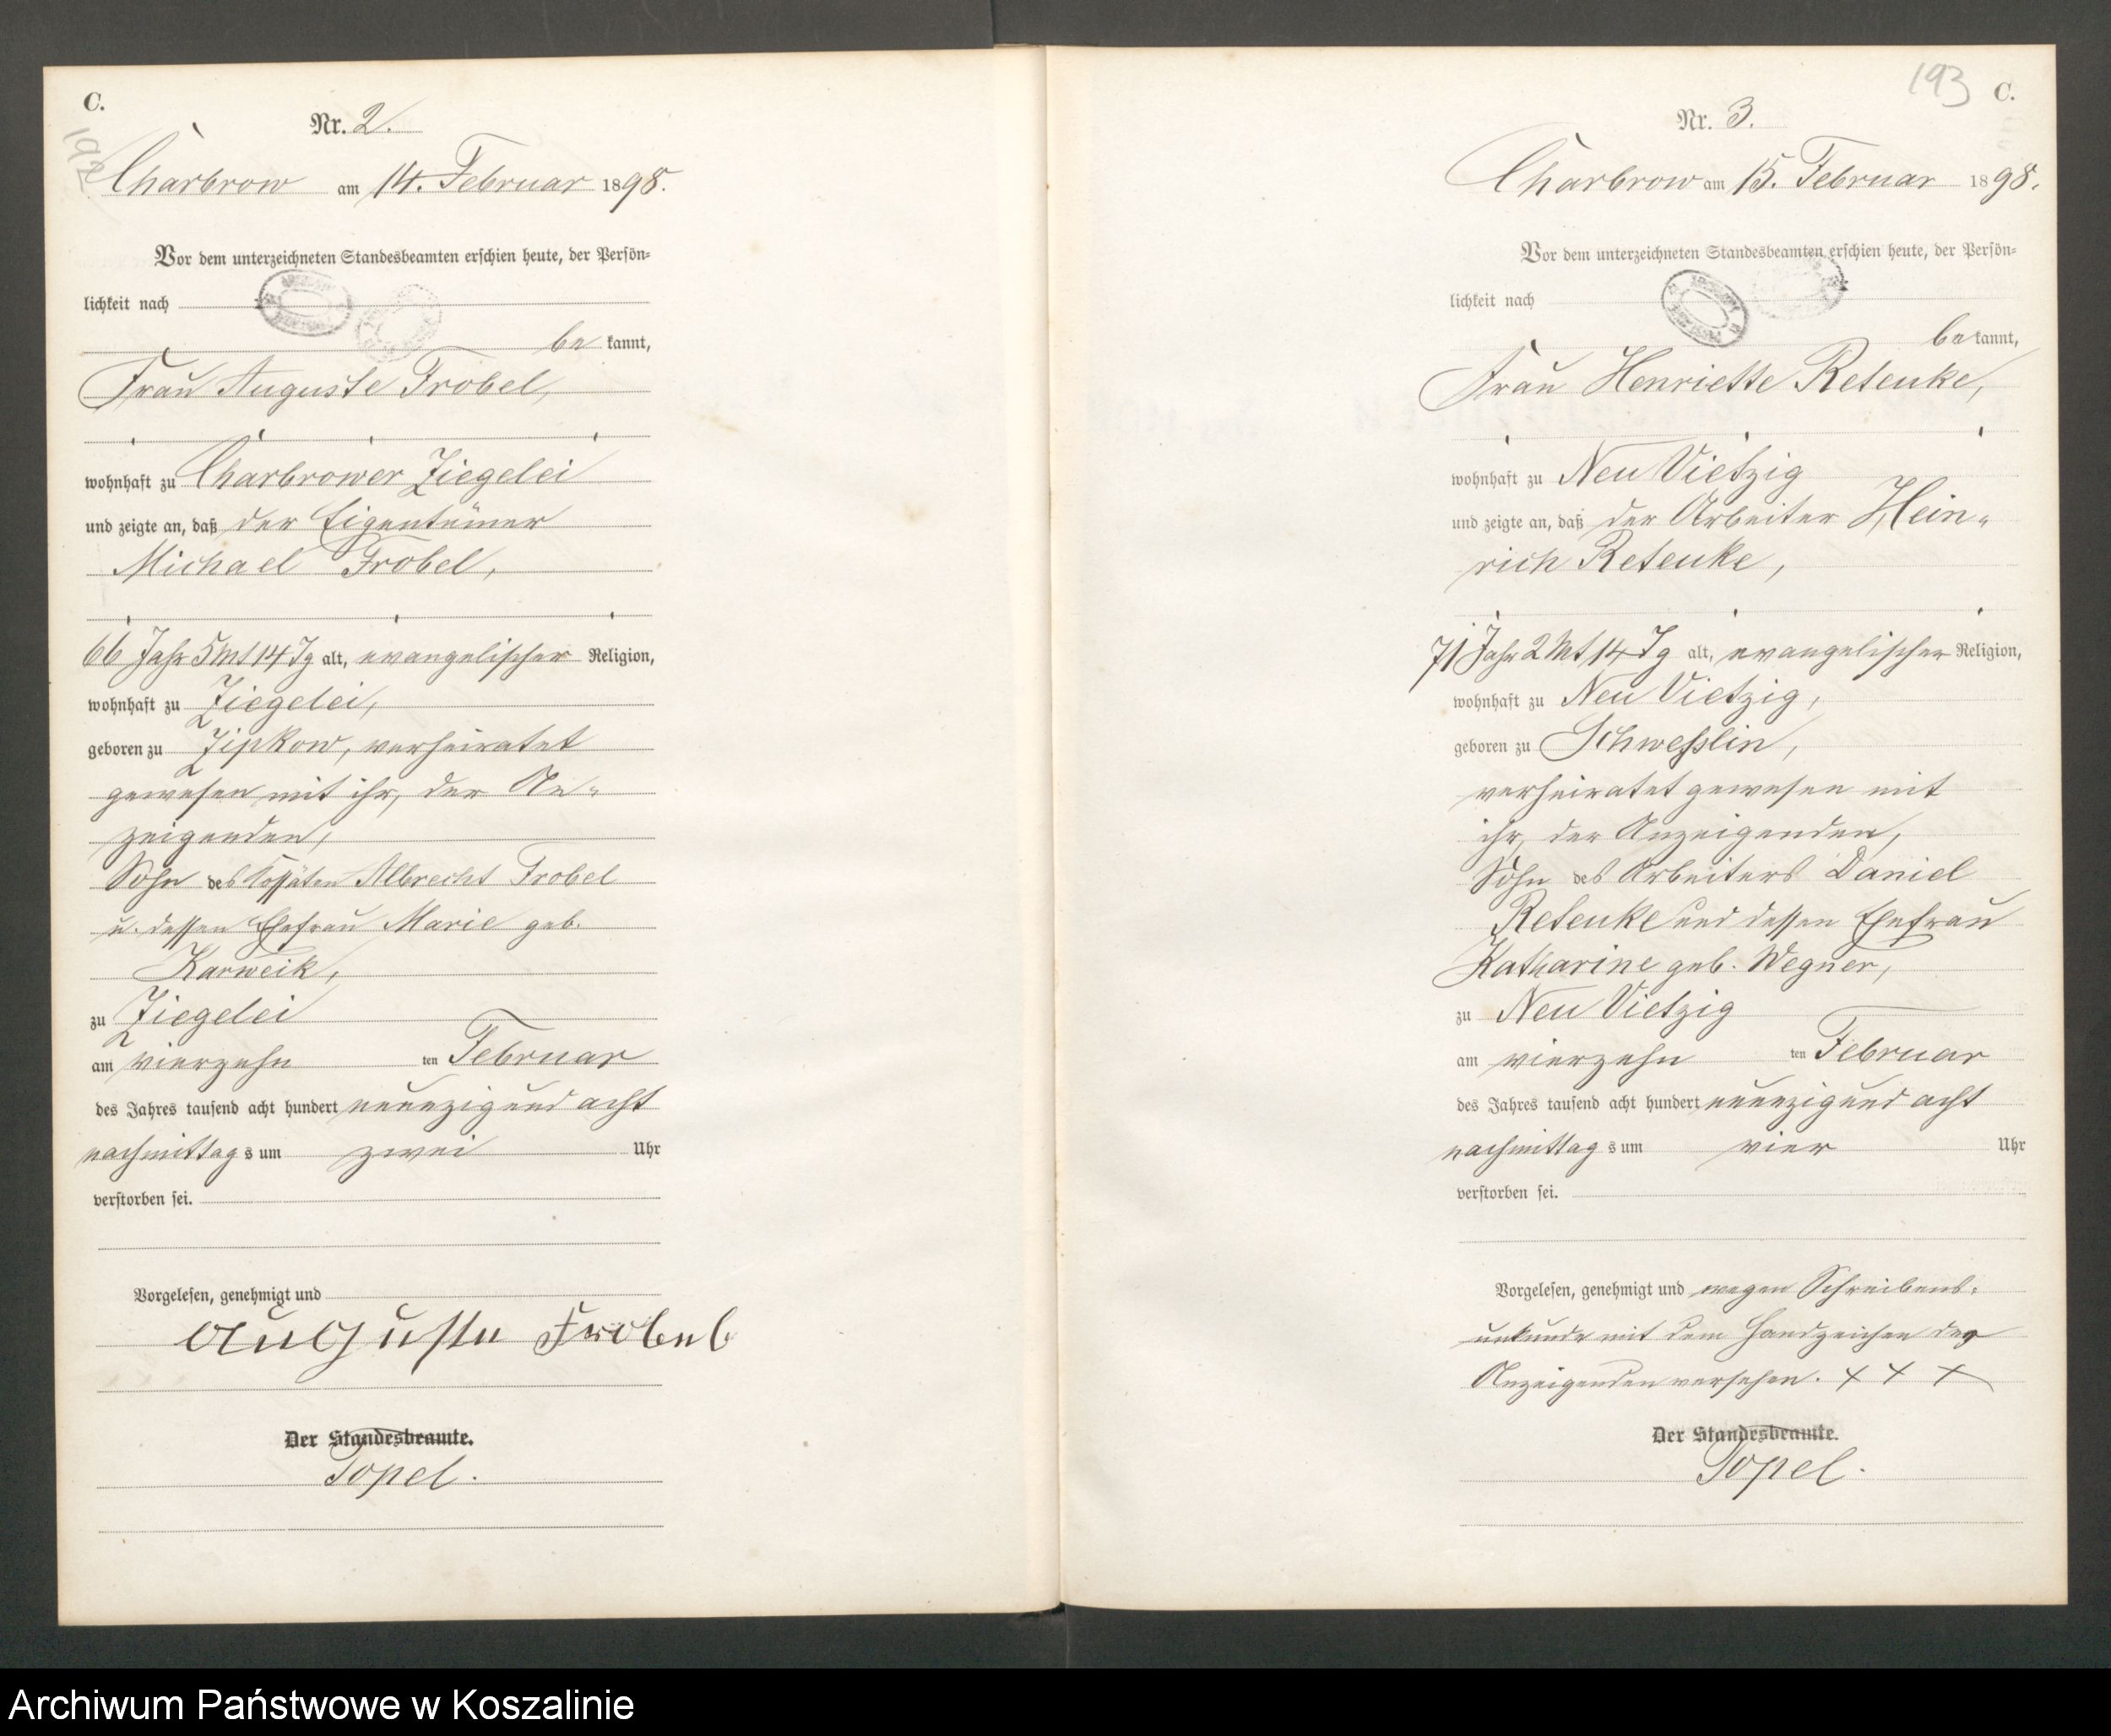 C.
192
Nr. 2.
Charbrow am 14. Februar 1898.
Vor dem unterzeichneten Standesbeamten erschien heute, der Persön-
lichkeit nach
be kannt,
Frau Auguste Frobel,
wohnhaft zu Charbrower Ziegelei
und zeigte an, daß der Eigentümer
Michael Frobel,
66 Jahr 5 Mt 14 Tg alt, evangelischer Religion,
wohnhaft zu Ziegelei,
geboren zu Zipkow, verheiratet
gewesen mit ihr, der An-
zeigenden,
Sohn des Kossäten Albrecht Frobel
u. dessen Ehefrau Marie geb.
Karweik,
zu Ziegelei
am vierzehn ten Februar
des Jahres tausend acht hundert neunzig und acht
nachmittag s um zwei Uhr
verstorben sei.
Vorgelesen, genehmigt und
Auguste Frobel
Der Standesbeamte.
Topel.
193 C.
Nr. 3.
Charbrow am 15. Februar 1898.
Vor dem unterzeichneten Standesbeamten erschien heute, der Persön-
lichkeit nach
be kannt,
Frau Henriette Retenke,
wohnhaft zu Neu Vietzig
und zeigte an, daß der Arbeiter Hein-
rich Retenke,
71 Jahr 2 Mt 14 Tg alt, evangelischer Religion,
wohnhaft zu Neu Vietzig,
geboren zu Schweßlin,
verheiratet gewesen mit
ihr, der Anzeigenden,
Sohn des Arbeiters Daniel
Retenke und dessen Ehefrau
Katharine geb. Wegner,
zu Neu Vietzig
am vierzehn ten Februar
des Jahres tausend acht hundert neunzig und acht
nachmittag s um vier Uhr
verstorben sei.
Vorgelesen, genehmigt und wegen Schreibens-
unkunde mit dem Handzeichen der
Anzeigenden versehen. + + +
Der Standesbeamte.
Topel.
Archiwum Państwowe w Koszalinie